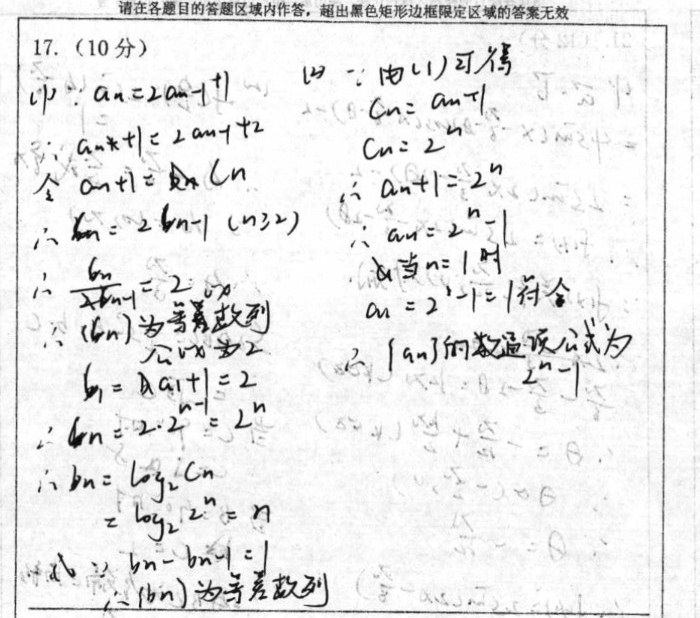 请在各题目的答题区域内作答，超出黑色矩形边框限定区域的答案无效
17. (10分)
(1) ∵ an = 2an-1 + 1
∴ an+1 = 2an-1+2
令 an+1 = Cn
∴ bn = 2bn-1 (n≥2)
∴ bn/2bn-1 = 2
∴ (bn) 为等差数列
公比为2
b1 = a1+1 = 2
∴ bn = 2·2^n-1 = 2^n
∴ bn = log2 Cn
= log2 2^n = n
∵ bn - bn-1 = 1
∴ (bn) 为等差数列
(2) ∵ 由(1)可得
Cn = an+1
Cn = 2^n
∴ an+1 = 2^n
∴ an = 2^n - 1
当n=1时
a1 = 2^1 - 1 = 1 符合
∴ {an}的通项公式为
2^n - 1